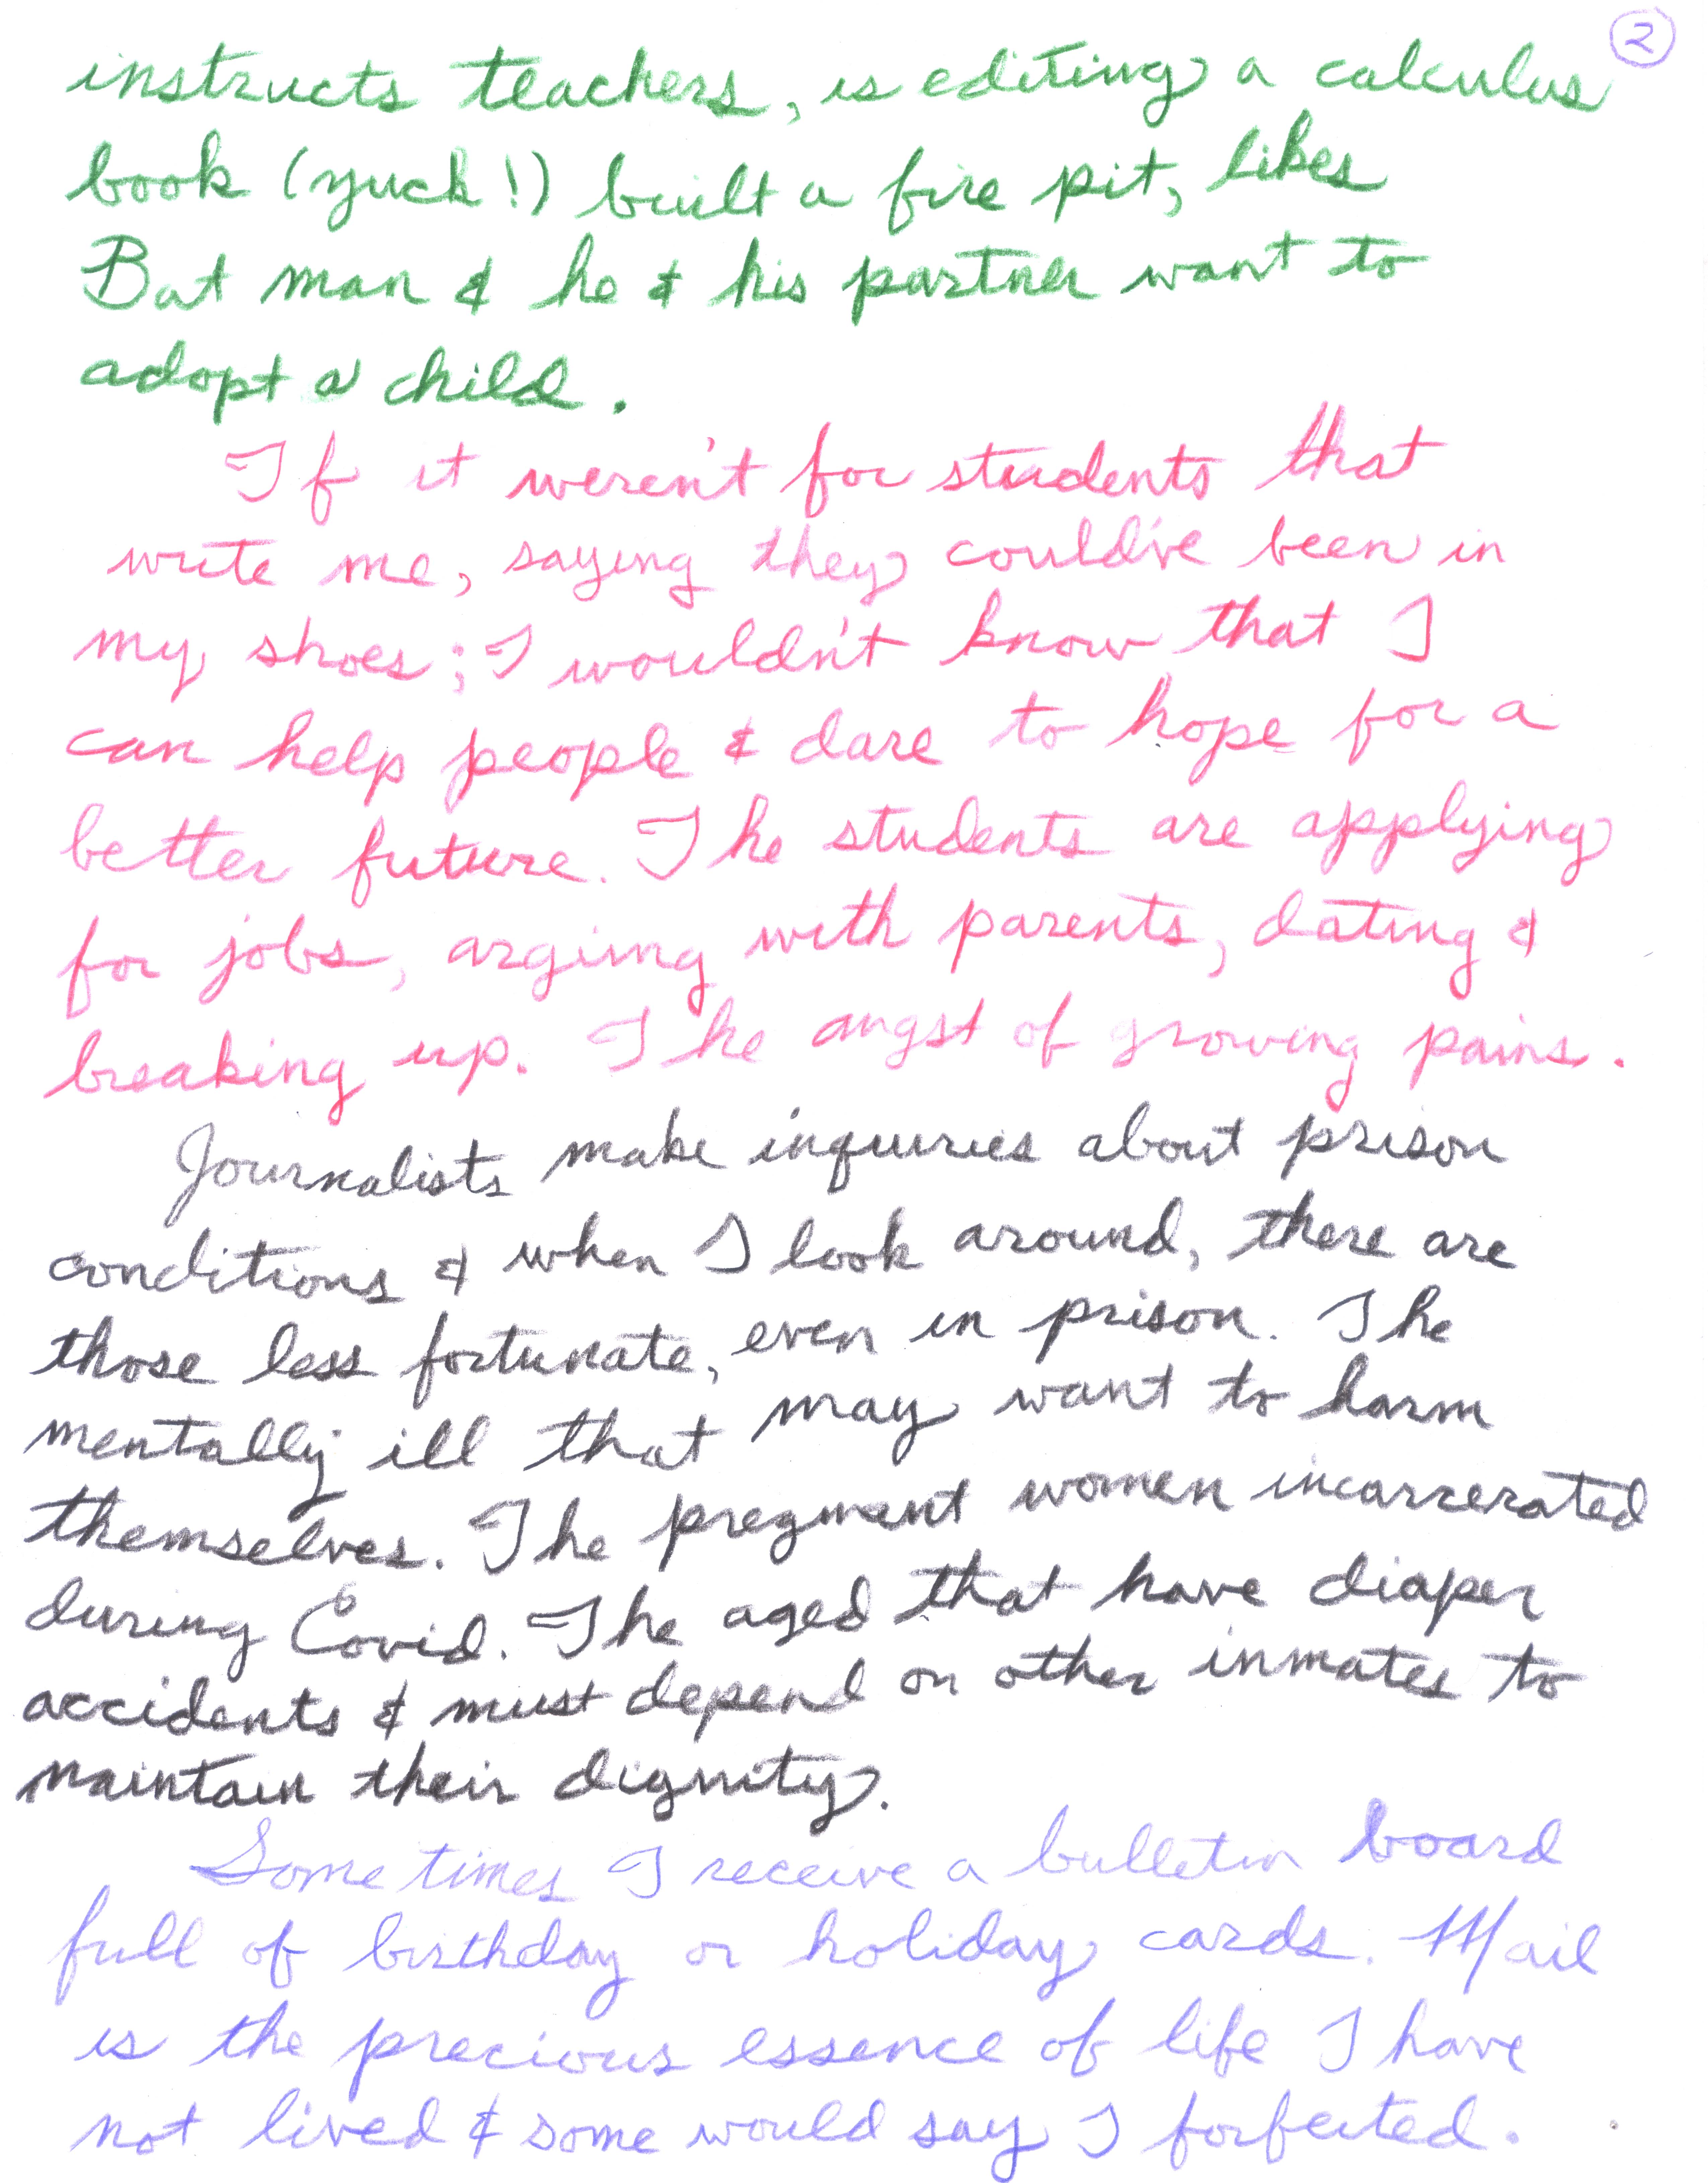 2
instructs teachers, is editing a calculus
book (yuck!) built a fire pit, likes
Bat man & he & his partner want to
adopt a child.
If it weren't for students that
write me, saying they could've been in
my shoes; I wouldn't know that I
can help people & dare to hope for a
better future. The students are applying
for jobs, arging with parents, dating &
breaking up. The angst of growing pains.
Journalists make inquiries about prison
conditions & when I look around, there are
those less fortunate, even in prison. The
mentally ill that may want to harm
themselves. The pregnant women incarcerated
during Covid. The aged that have diaper
accidents & must depend on other inmates to
maintain their dignity.
Some times I receive a bulletin board
full of birthday or holiday cards. Mail
is the precious essence of life I have
not lived & some would say I forfeited.